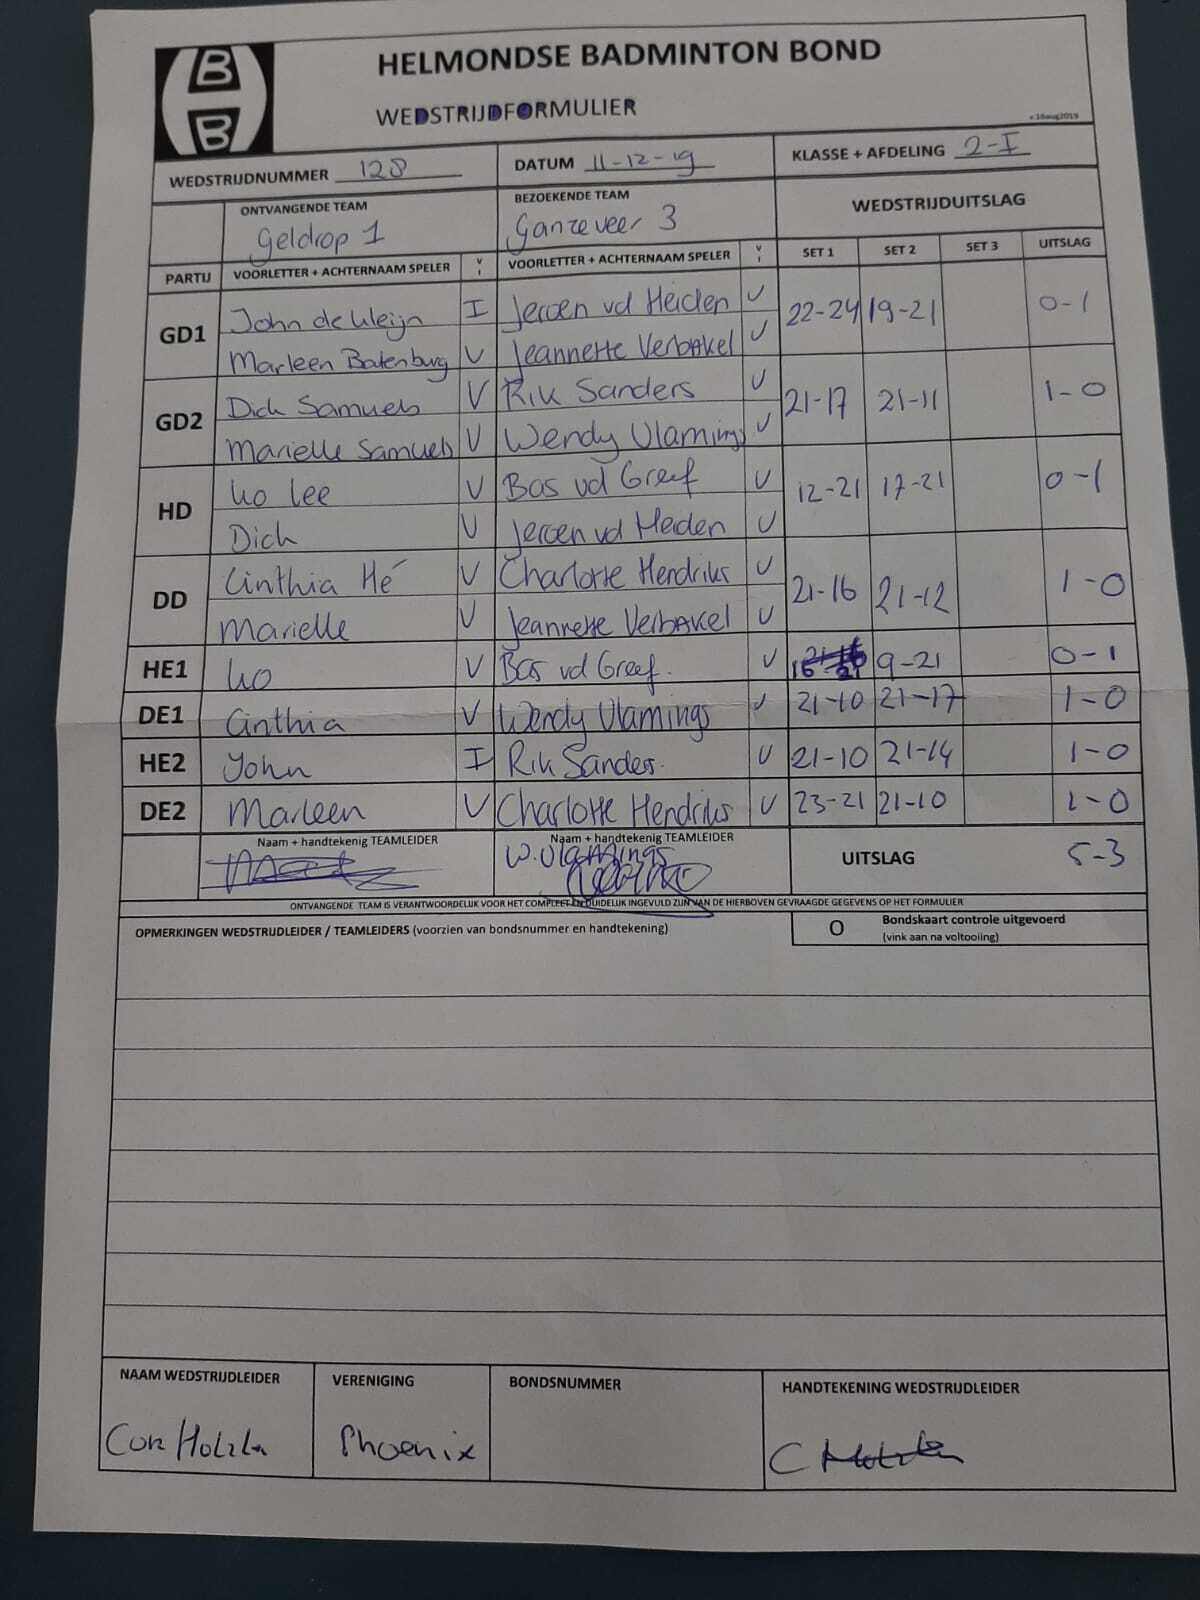 B
B
HELMONDSE BADMINTON BOND
WEDSTRIJDFORMULIER
v.16aug2019
WEDSTRIJDNUMMER 128 DATUM 11-12-19 KLASSE + AFDELING 2-I
ONTVANGENDE TEAM BEZOEKENDE TEAM WEDSTRIJDUITSLAG
Geldrop 1 Ganzeveer 3
PARTIJ VOORLETTER + ACHTERNAAM SPELER V I VOORLETTER + ACHTERNAAM SPELER V I SET 1 SET 2 SET 3 UITSLAG
GD1 John de Kleijn I Jeroen vd Heiden V 22-24 19-21 0-1
Marleen Batenburg V Jeannette Verbakel V
GD2 Dick Samuels V Rik Sanders V 21-17 21-11 1-0
Marielle Samuels V Wendy Vlamings V
HD Ko Lee V Bas vd Greef V 12-21 17-21 0-1
Dick V Jeroen vd Heiden V
DD Cinthia Hé V Charlotte Hendriks V 21-16 21-12 1-0
Marielle V Jeannette Verbakel V
HE1 Ko V Bas vd Greef. V 9-21 0-1
DE1 Cinthia V Wendy Vlamings V 21-10 21-17 1-0
HE2 John I Rik Sanders. V 21-10 21-14 1-0
DE2 Marleen V Charlotte Hendriks V 23-21 21-10 1-0
Naam + handtekenig TEAMLEIDER Naam + handtekenig TEAMLEIDER UITSLAG 5-3
W. Vlamings
ONTVANGENDE TEAM IS VERANTWOORDELIJK VOOR HET COMPLEET EN DUIDELIJK INGEVULD ZIJN VAN DE HIERBOVEN GEVRAAGDE GEGEVENS OP HET FORMULIER
OPMERKINGEN WEDSTRIJDLEIDER / TEAMLEIDERS (voorzien van bondsnummer en handtekening) O Bondskaart controle uitgevoerd
(vink aan na voltooiing)
NAAM WEDSTRIJDLEIDER VERENIGING BONDSNUMMER HANDTEKENING WEDSTRIJDLEIDER
Cor Phoenix C